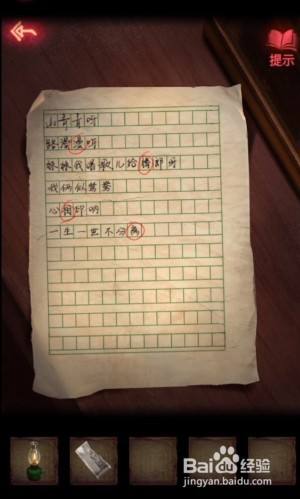 提示
山青青呀
路漫漫呀
妹妹我唱歌儿给情郎呀
我俩似鸳鸯
心相印呀
一生一世不分离
Baidu经验
jingyan.baidu.com